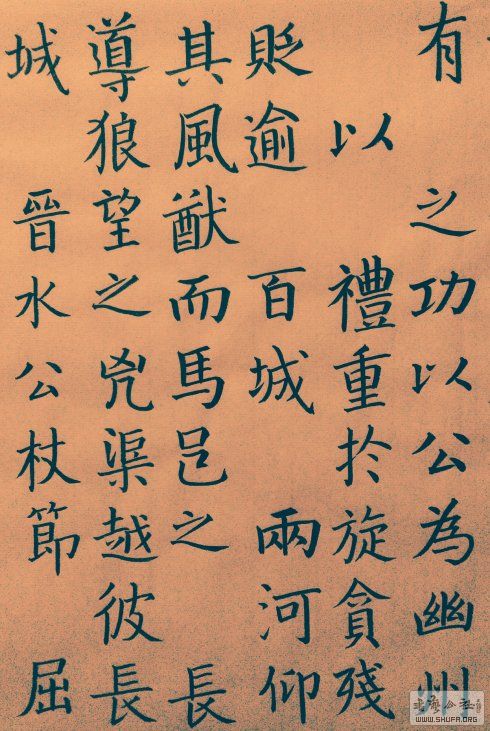 有之功以公為幽州
以禮重於旋貪殘
貶逾百城兩河仰
其風猷而馬邑之長
導狼望之兇渠越彼長
城晉水公杖節屈
書法公社
WWW.SHUFA.ORG